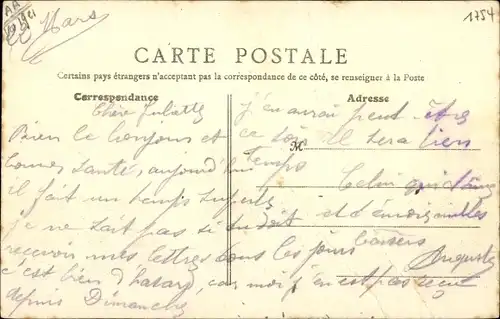 1754
22 Mars
CARTE POSTALE
Certains pays étrangers n'acceptant pas la correspondance de ce côté, se renseigner à la Poste
Correspondance
Chère Juliette
bien le bonjour et
bonne santé, aujourd'hui
il fait un temps superbe
je ne sait pas si du doit
recevoir mes lettres tous les jours
c'est bien d'hasard, car moi j'en est pas reçue
depuis Dimanche
Adresse
J'en aurai peut être
ce soir Il sera bien
M
temps
Celui qui t'aime
et d'émorzailles
baisers
Auguste